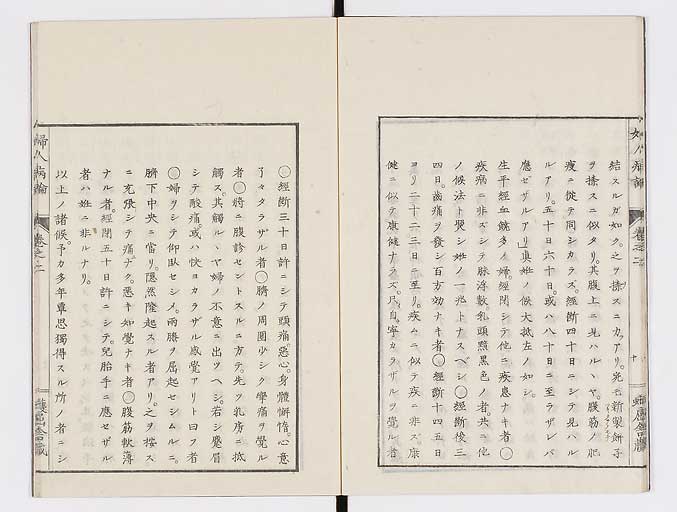 結スルガ如ク。之ヲ揉スニ力アリ。宛モ新製餅子
ヲ揉スニ似タリ。其腹上ニ見ハルヽヤ。腹筋ノ肥
瘦ニ從テ同シカラズ。經斷四十日ニシテ見ハル
ルアリ。五十日六十日。或ハ八十日ニ至ラザレバ
應ゼザルアリ。眞姙ノ候大抵左ノ如シ。
生平經血饒多ノ婦。經閉シテ他ニ疾患ナキ者〇
疾病ニ非ズシテ脉浮數乳頭黯黒色ノ者共ニ他
ノ候法ト照シ姙ノ一兆トナスベシ〇經斷後三
四日。齒痛ヲ發シ百方効ナキ者〇經斷十四五日
ヨリ二十二三日ニ至リ。疾ムニ似テ疾ニ非ズ。康
健ニ似テ康健ナラズ。只自寧カラザルヲ覺ル者
〇經斷三十日許ニシテ頭痛惡心。身體懈惰心意
了々タラザル者〇臍ノ周圍少シク攣痛ヲ覺ル
者〇將ニ腹診セントスルニ方テ。先ツ乳房ニ抵
觸ス。其觸ルヽヤ婦ノ不意ニ出ツヘシ。若シ顰眉
シテ酸痛。或ハ快ヨカラザル感覺アリト曰フ者
〇婦ヲシテ仰臥セシメ。兩膝ヲ屈起セシムルニ。
臍下中央ニ當リ。隠然隆起スル者アリ。之ヲ按ス
ニ充張シテ痛ナク。惡キ知覺ナキ者〇腹筋軟薄
ナル者。經閉五十日許ニシテ。兒胎手ニ應セザル
者ハ姙ニ非ルナリ。
以上ノ諸候。予カ多年覃思獨得スル所ノ者ニシ
婦人病論
卷之二